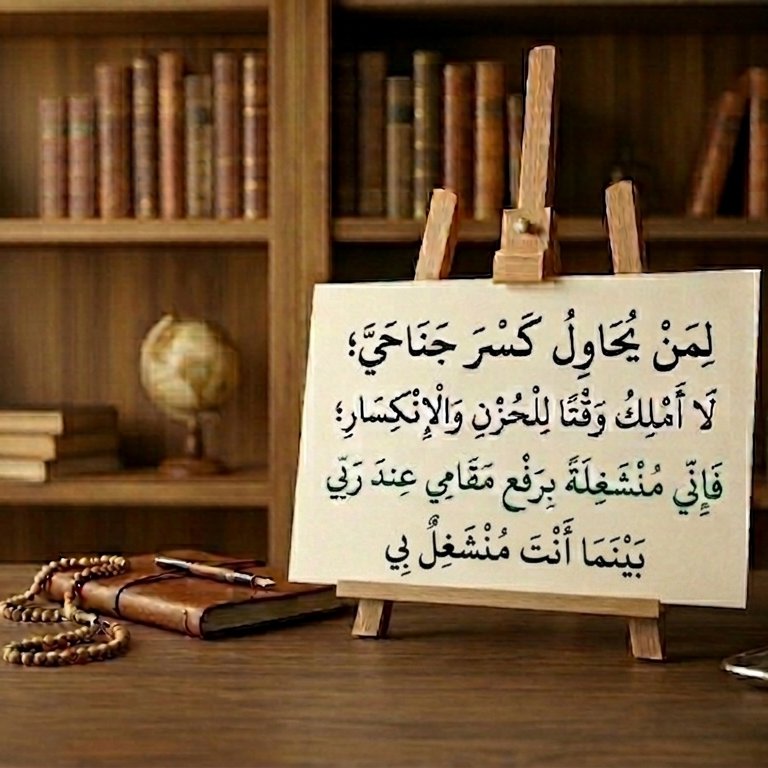 لِمَنْ يُحَاوِلُ كَسْرَ جَنَاحَيَّ؛
لَا أَمْلِكُ وَقْتًا لِلْحُزْنِ وَالْإِنْكِسَارِ؛
فَإِنِّي مُنْشَغِلَةٌ بِرَفْعِ مَقَامِي عِندَ رَبِّي
بَيْنَمَا أَنْتَ مُنْشَغِلٌ بِي